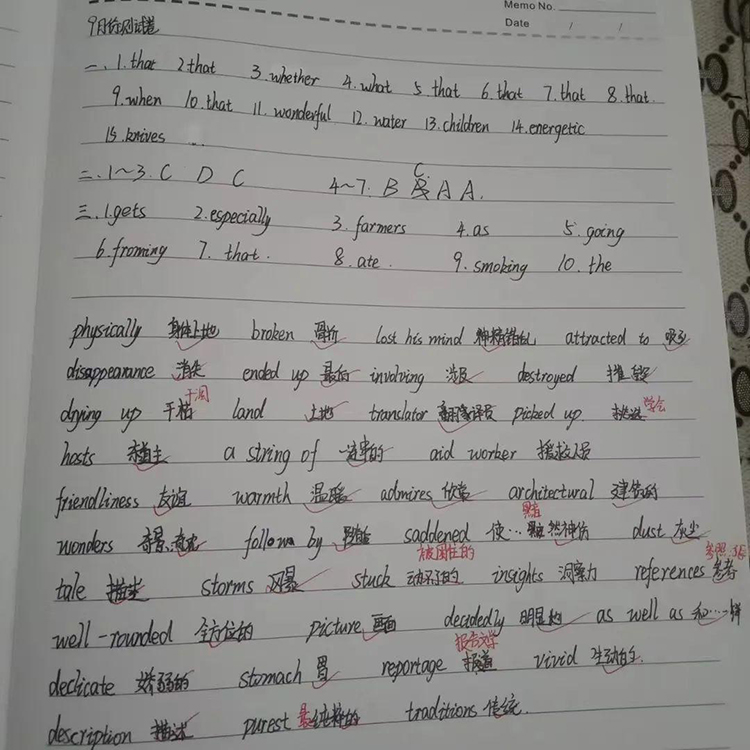 Memo No.
Date / /
9月份测试卷
一、1.that 2.that 3.whether 4.what 5.that 6.that 7.that 8.that
9.when 10.that 11.wonderful 12.water 13.children 14.energetic
15.knives ...
二、1~3. C D C 4~7. B C A A.
三、1.gets 2.especially 3.farmers 4.as 5.going
6.froming 7.that. 8.ate. 9.smoking 10.the
physically 身体上地 broken 骨折 lost his mind 神精错乱 attracted to 吸引
disappearance 消失 ended up 最后 involving 涉及 destroyed 摧毁
干涸
drying up 干枯 land 土地 translator 翻译译员 picked up. 挑选 学会
hosts 主 a string of 一连串的 aid worker 援救人员
friendliness 友谊 warmth 温暖 admires 欣赏 architectural 建筑的
wonders 奇景 follow by saddened 使…黯然神伤 dust 灰尘
被困住的 参照
tale 描述 storms 风暴 stuck 动不了的 insights 洞察力 references 参考
well-rounded 全方位的 picture 画面 decidedly 明显地 as well as 和…一样
报告文学
declicate 娇弱的 stomach 胃 reportage 报道 vivid 生动的
description 描述 purest 最纯粹的 traditions 传统